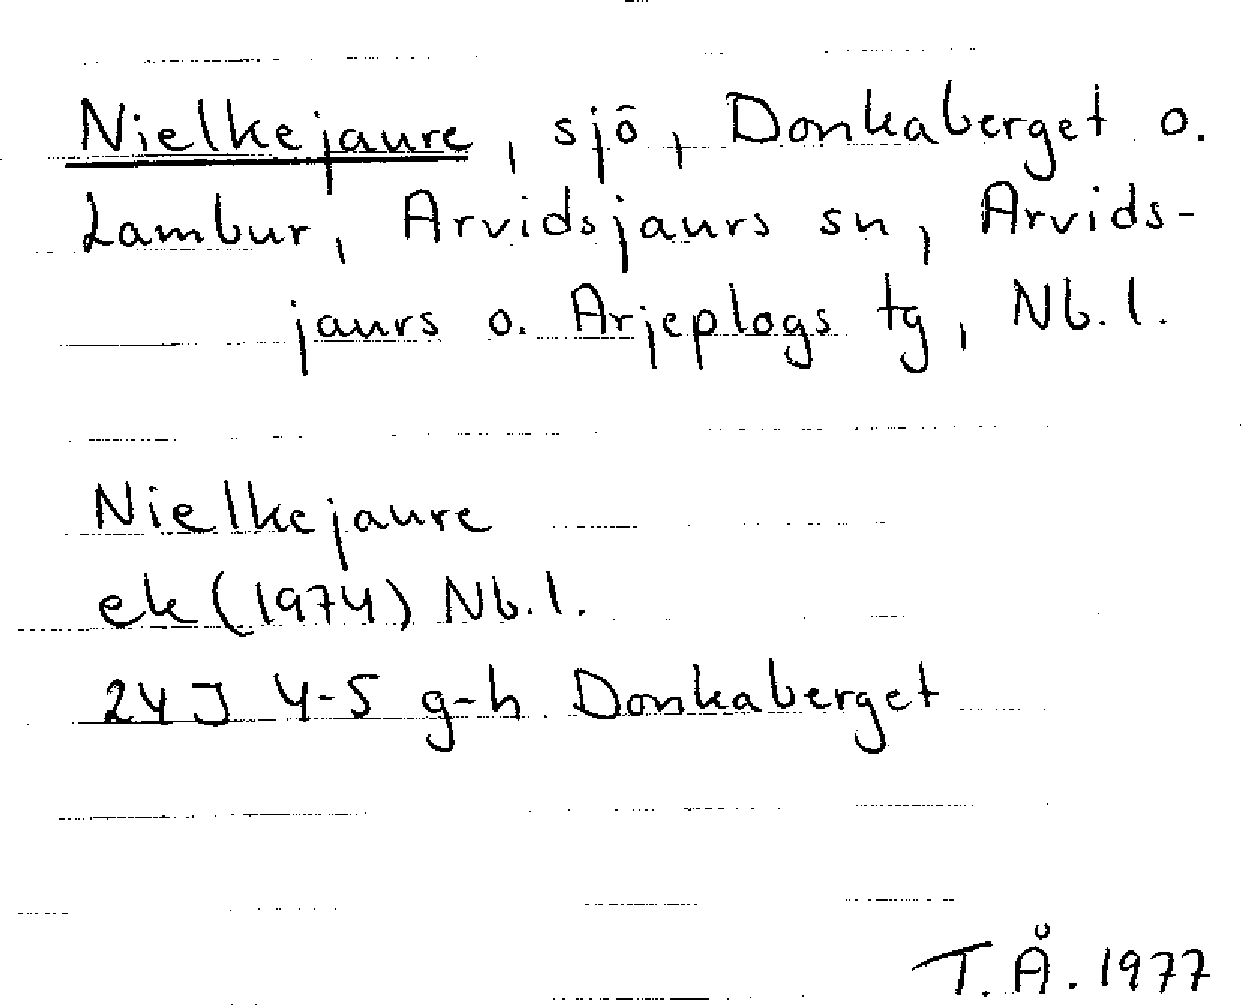 Nielkejaure, sjö, Donkaberget o.
Lambur, Arvidsjaurs sn, Arvids-
jaurs o. Arjeplogs tg, Nb.l.
Nielkejaure
ek (1974) Nb.l.
24J 4-5 g-h Donkaberget
T.Å. 1977